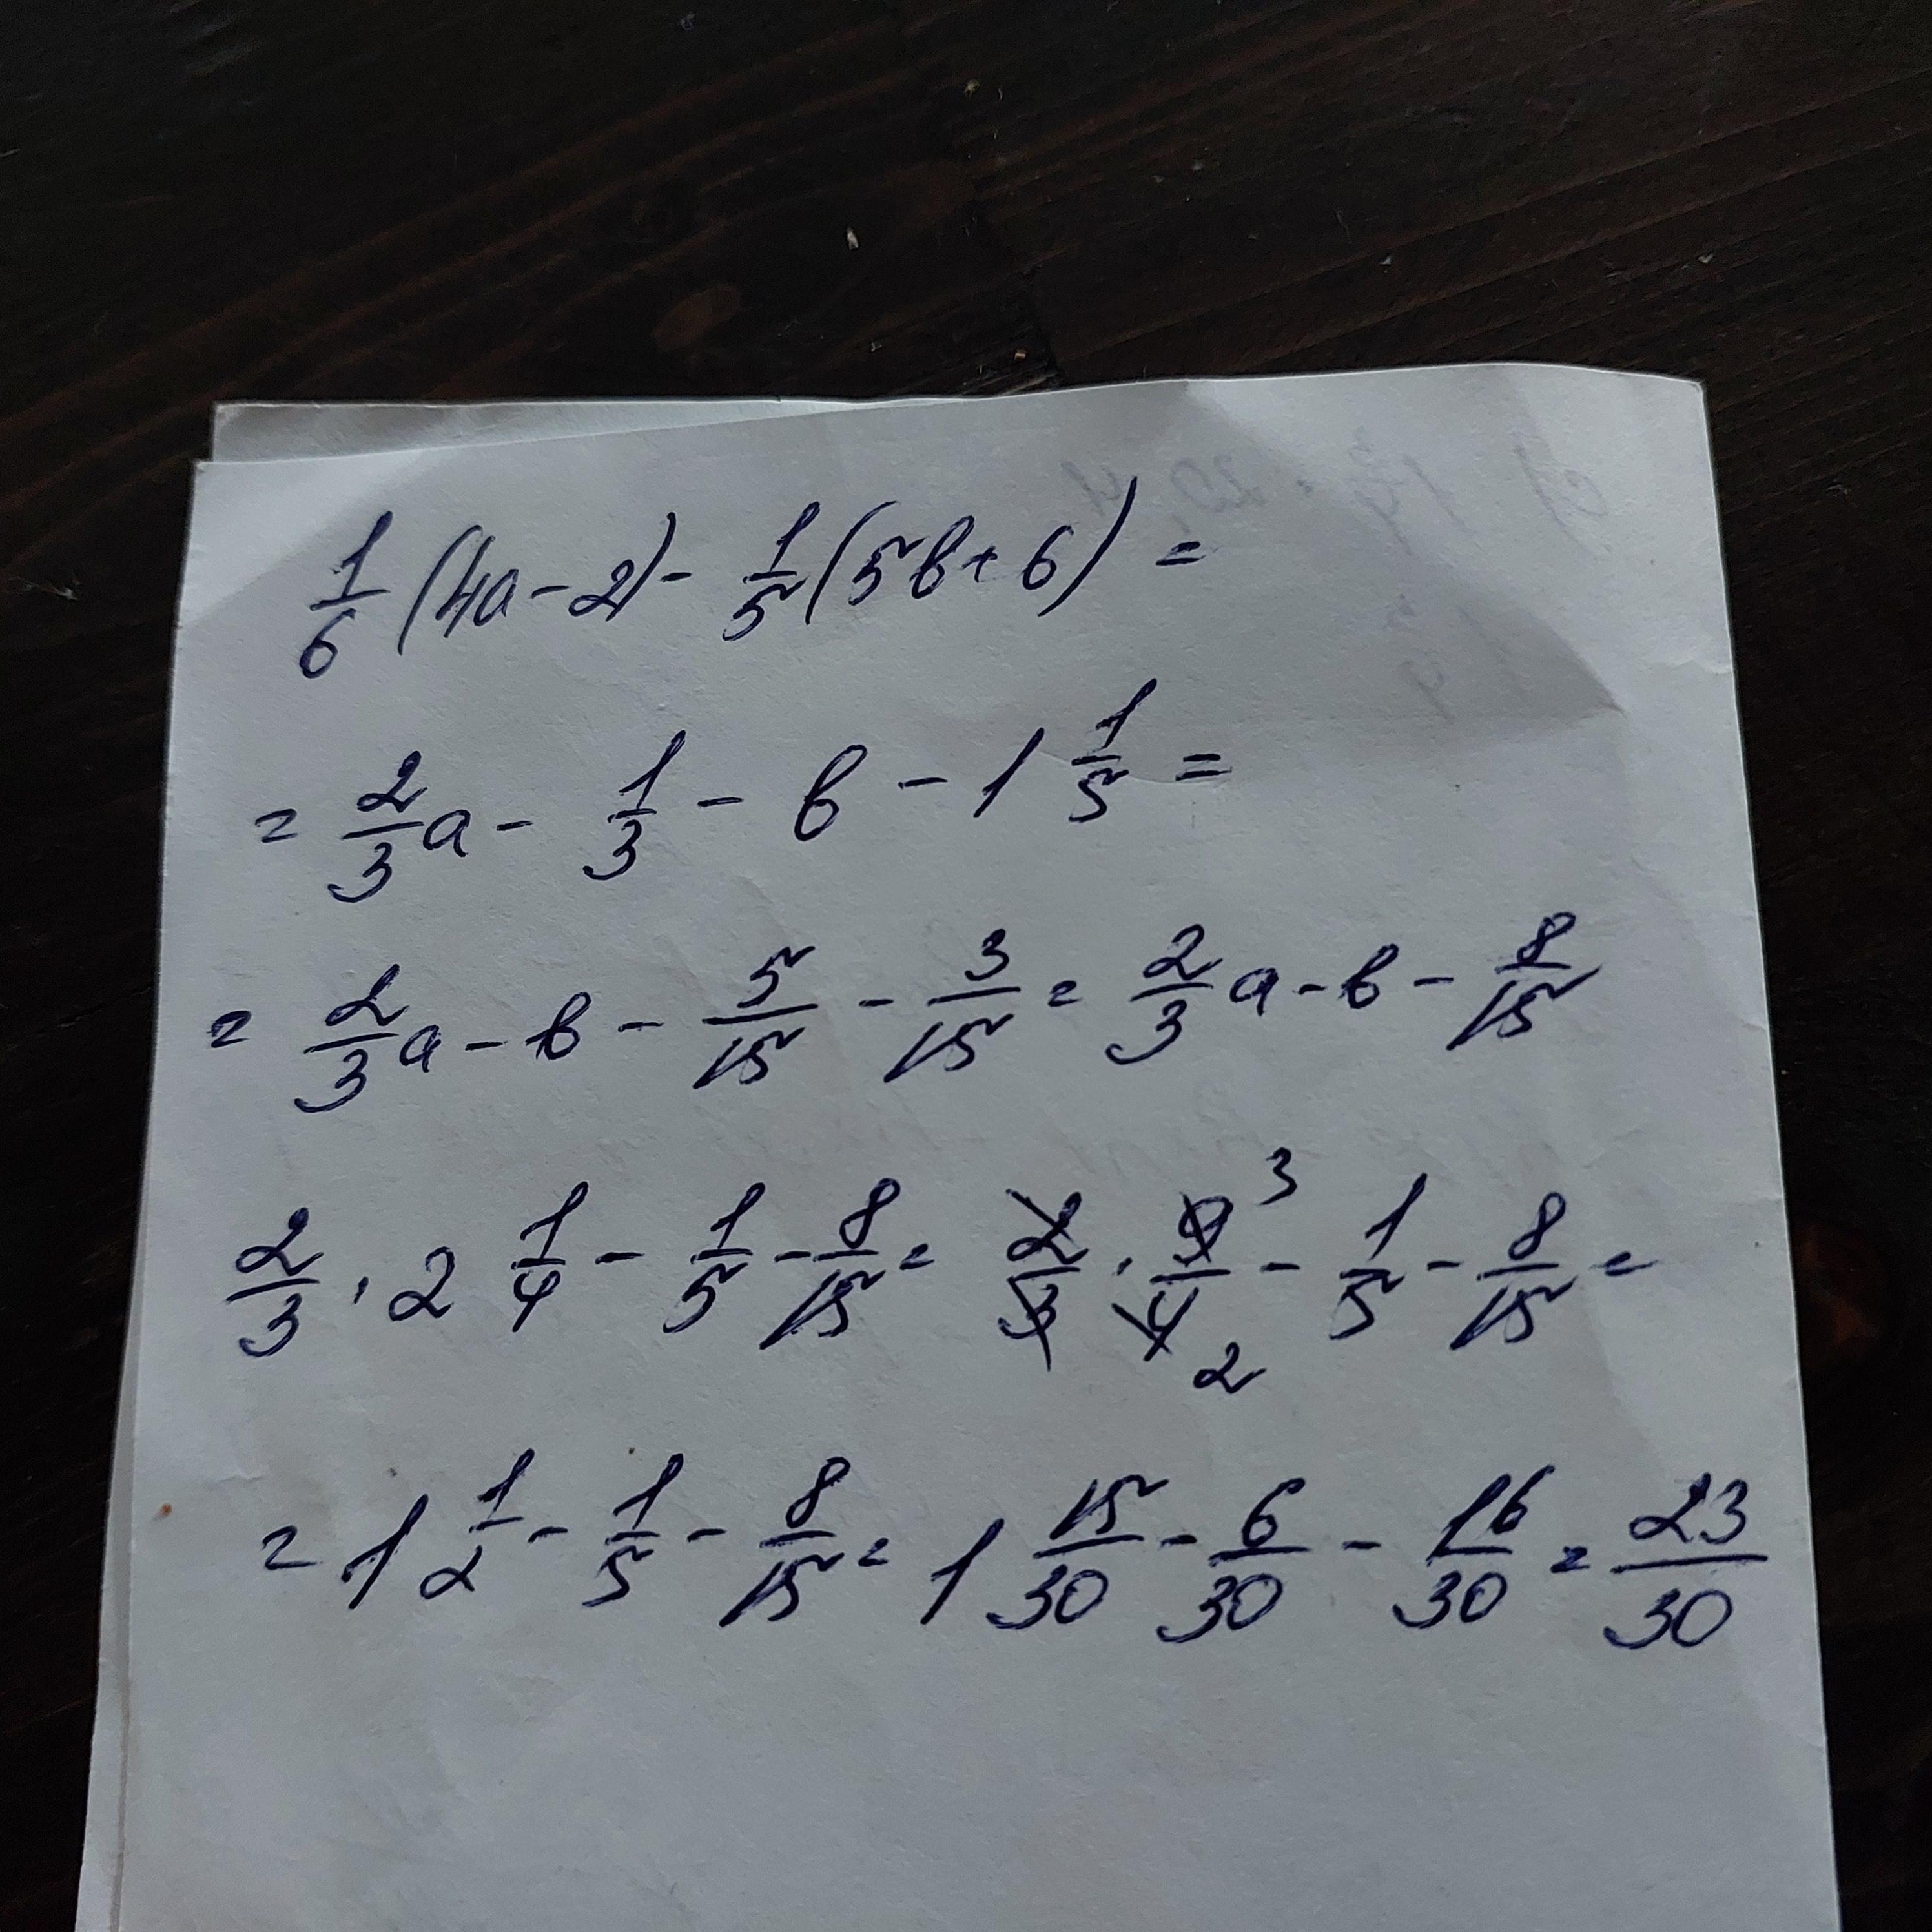 1/6 (4a - 2) - 1/5 (5b + 6) =
= 2/3 a - 1/3 - b - 1 1/5 =
= 2/3 a - b - 5/15 - 3/15 = 2/3 a - b - 8/15
2/3 · 2 1/4 - 1/5 - 8/15 = 2/3 · 9/4 3 2 - 1/5 - 8/15 =
= 1 1/2 - 1/5 - 8/15 = 1 15/30 - 6/30 - 16/30 = 23/30